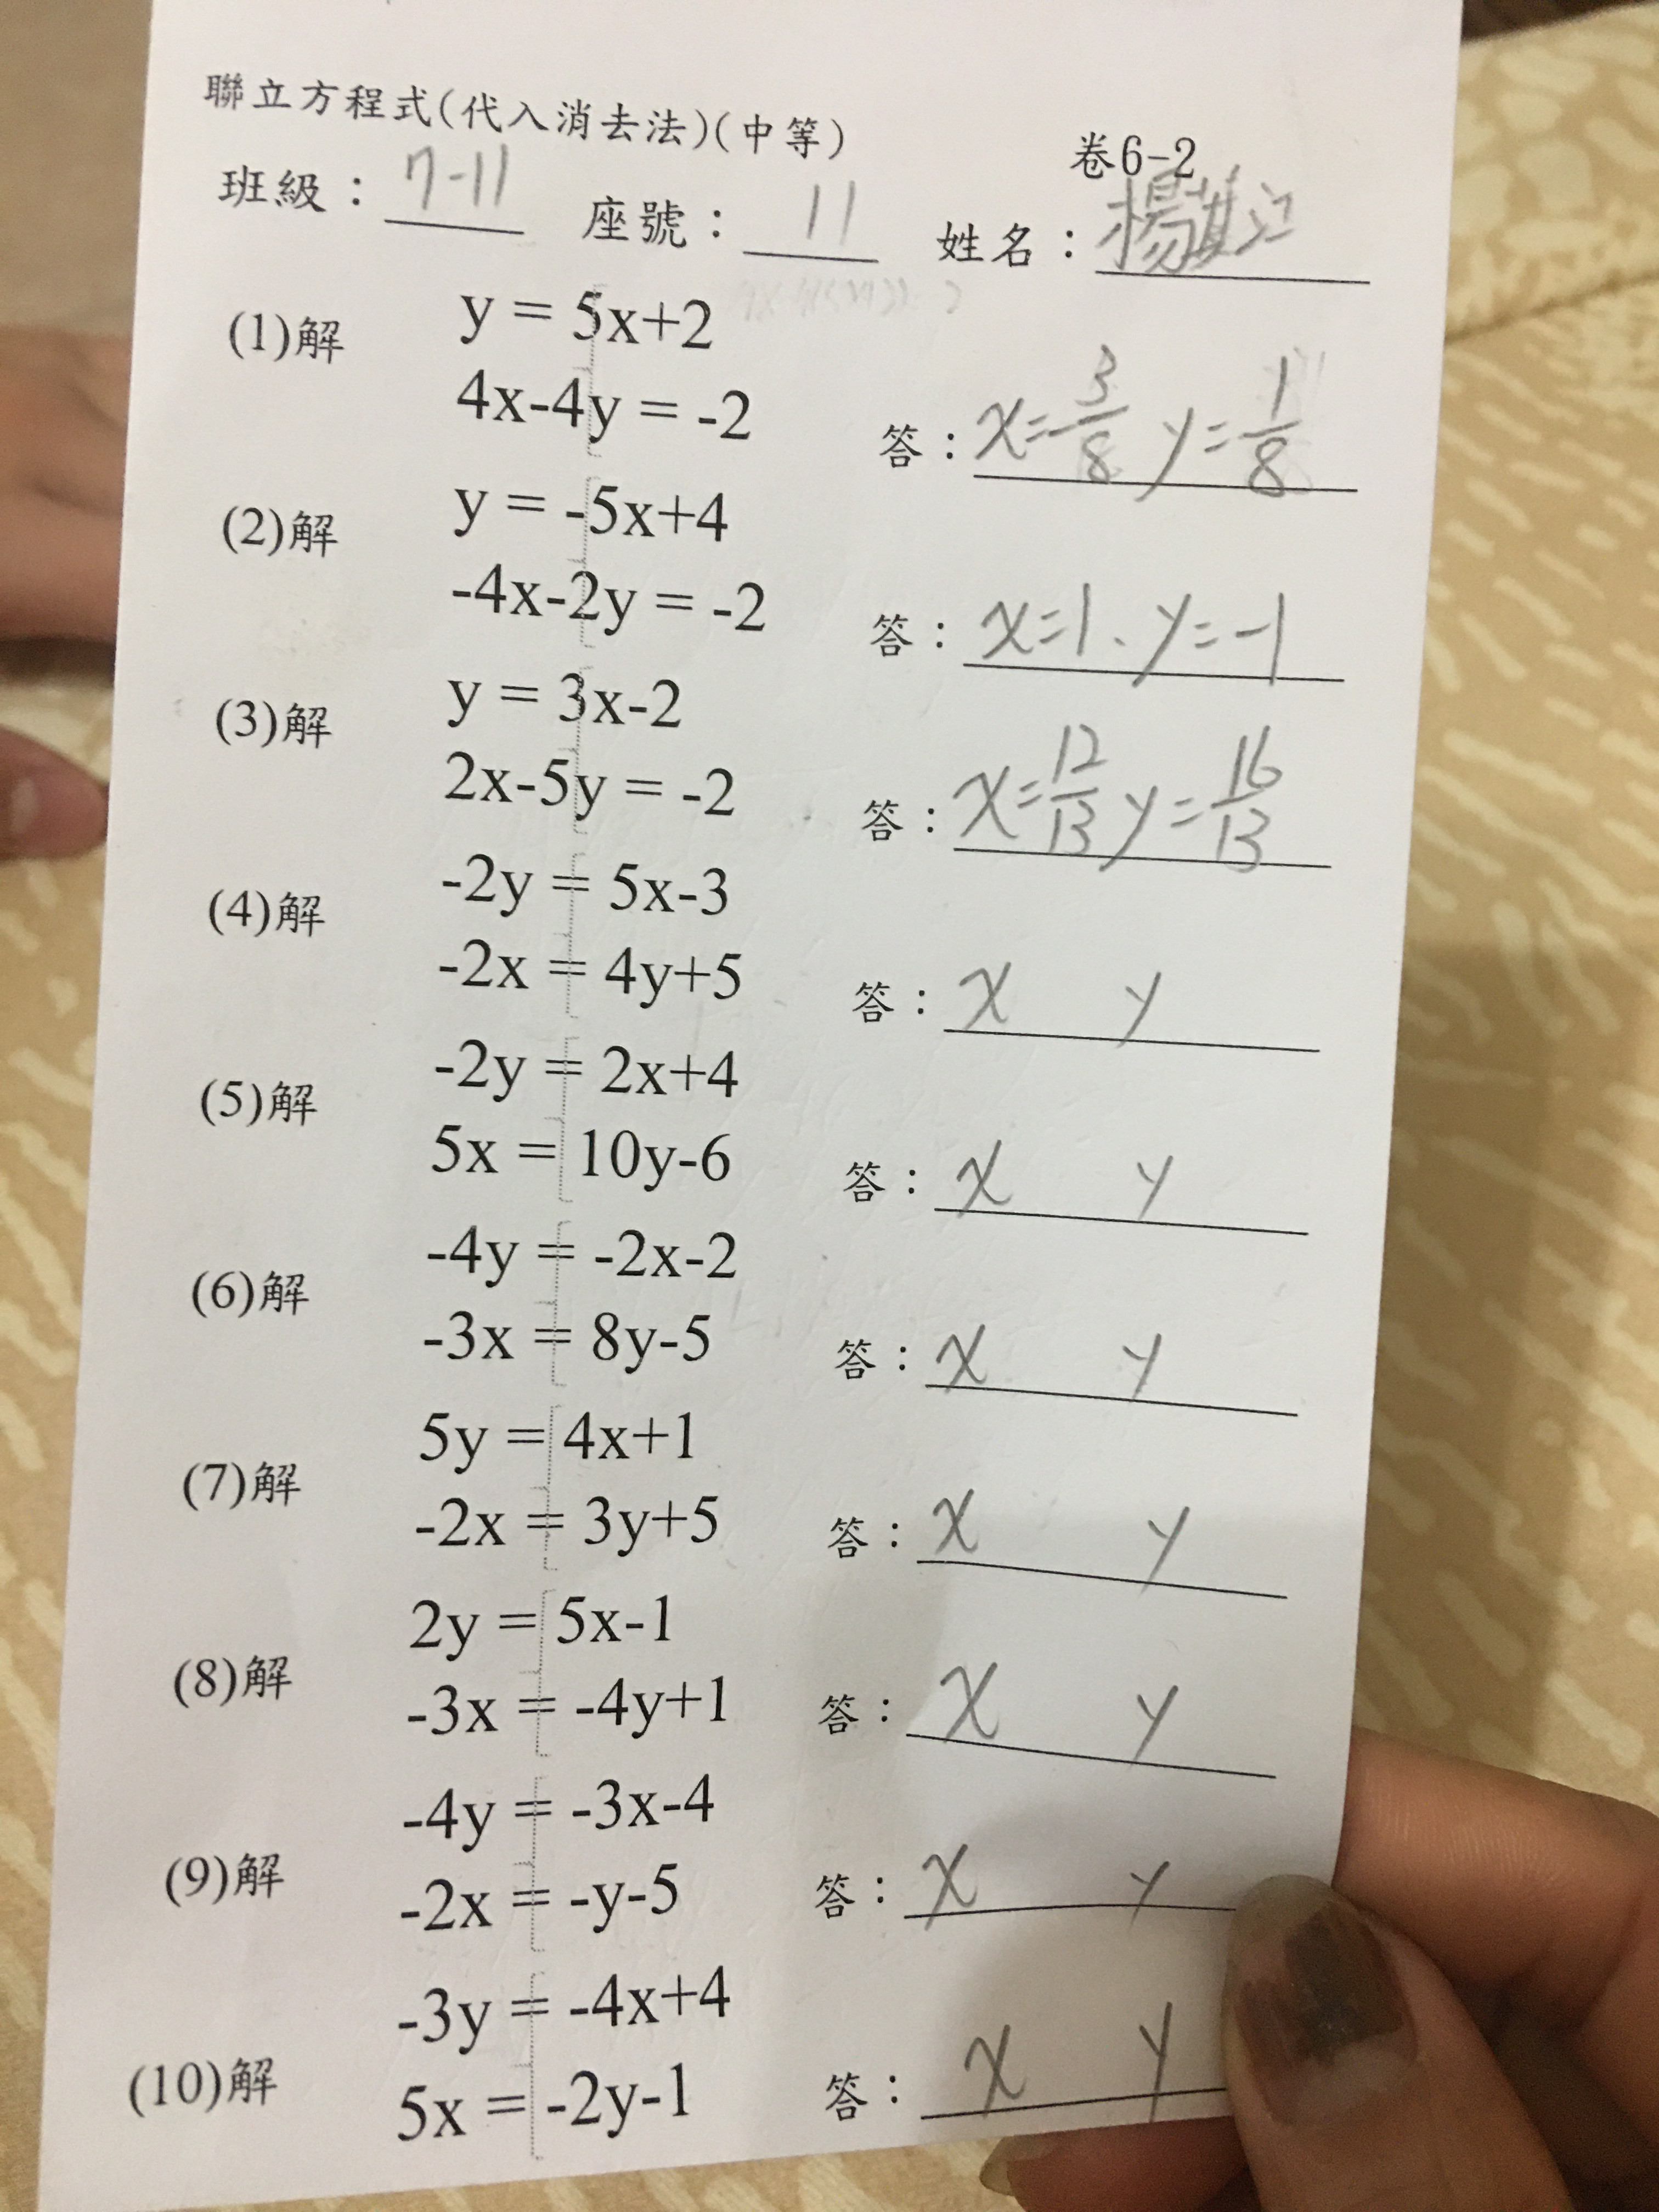 聯立方程式(代入消去法)(中等)
卷6-2
班級：7-11 座號：11 姓名：楊
(1)解 y = 5x+2
4x-4y = -2
答：x=-3/8 y=1/8
(2)解 y = -5x+4
-4x-2y = -2
答：x=1、y=-1
(3)解 y = 3x-2
2x-5y = -2
答：x=12/13 y=16/13
(4)解 -2y = 5x-3
-2x = 4y+5
答：x y
(5)解 -2y = 2x+4
5x = 10y-6
答：x y
(6)解 -4y = -2x-2
-3x = 8y-5
答：x y
(7)解 5y = 4x+1
-2x = 3y+5
答：x y
(8)解 2y = 5x-1
-3x = -4y+1
答：x y
(9)解 -4y = -3x-4
-2x = -y-5
答：x y
(10)解 -3y = -4x+4
5x = -2y-1
答：x y